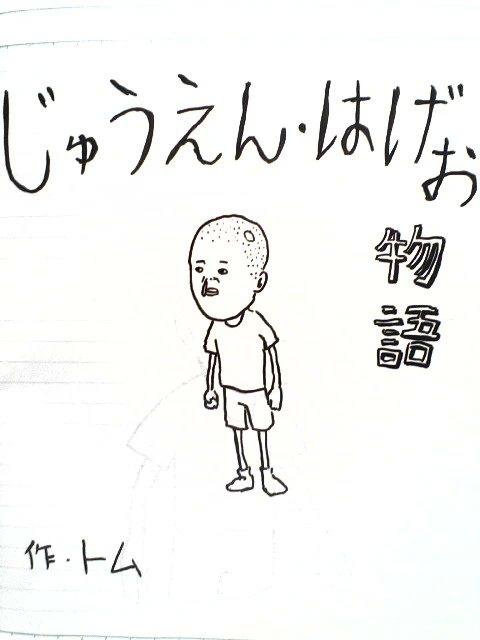 じゅうえん・はげお
物語
作・トム